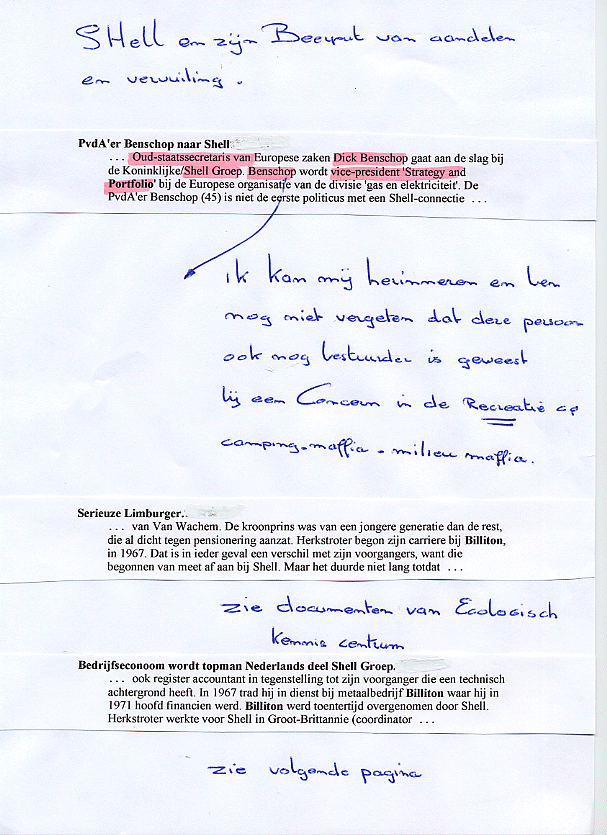 SHell en zijn Beerput van aandelen
en vervuiling.
PvdA'er Benschop naar Shell
... Oud-staatssecretaris van Europese zaken Dick Benschop gaat aan de slag bij
de Koninklijke/Shell Groep. Benschop wordt vice-president 'Strategy and
Portfolio' bij de Europese organisatie van de divisie 'gas en elektriciteit'. De
PvdA'er Benschop (45) is niet de eerste politicus met een Shell-connectie ...
ik kan mij herinneren en ben
nog niet vergeten dat deze persoon
ook nog bestuurder is geweest
bij een Concern in de Recreatie op
camping-maffia - milieu maffia.
Serieuze Limburger.
... van Van Wachem. De kroonprins was van een jongere generatie dan de rest,
die al dicht tegen pensionering aanzat. Herkstroter begon zijn carriere bij Billiton,
in 1967. Dat is in ieder geval een verschil met zijn voorgangers, want die
begonnen van meet af aan bij Shell. Maar het duurde niet lang totdat ...
zie documenten van Ecologisch
kennis centrum
Bedrijfseconoom wordt topman Nederlands deel Shell Groep.
... ook register accountant in tegenstelling tot zijn voorganger die een technisch
achtergrond heeft. In 1967 trad hij in dienst bij metaalbedrijf Billiton waar hij in
1971 hoofd financien werd. Billiton werd toentertijd overgenomen door Shell.
Herkstroter werkte voor Shell in Groot-Brittannie (coordinator ...
zie volgende pagina